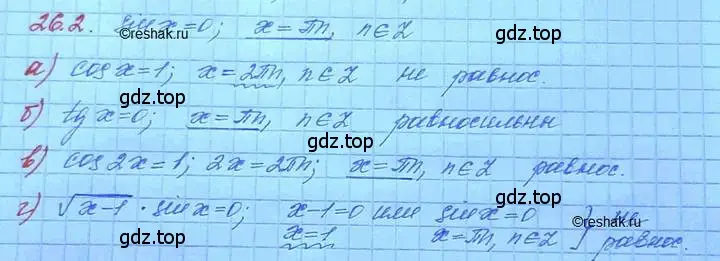 26.2. sin x=0; x=πn, n∈Z
©reshak.ru
gdz.top
а) cos x=1; x=2πn, n∈Z не равнос.
gdz.top
б) tg x=0; x=πn, n∈Z равносильны
gdz.top
в) cos2x=1; 2x=2πn; x=πn, n∈Z равнос.
gdz.top
г) √x-1 · sin x=0; x-1=0 или sin x=0 } не
©reshak.ru
gdz.top
x=1 x=πn, n∈Z равнос.
gdz.top